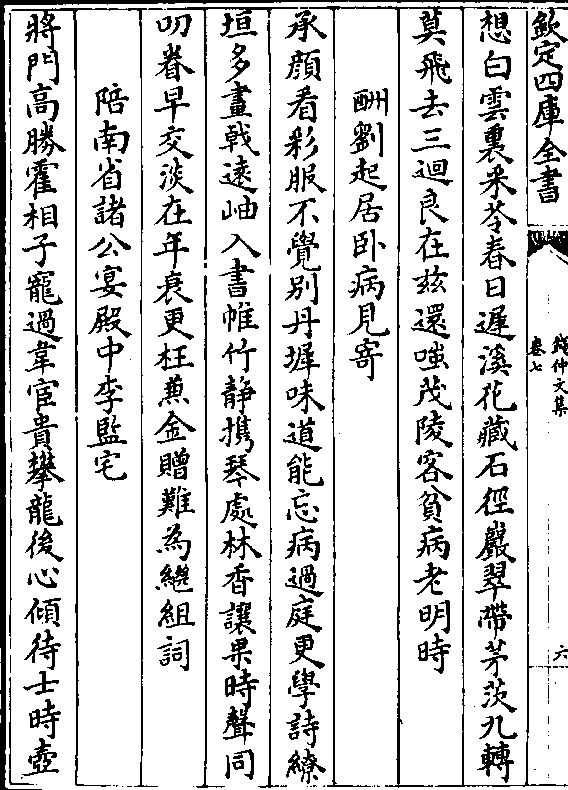 欽定四庫全書
錢仲文集
卷七
六
想白雲裏采苓春日遲溪花藏石徑巖翠帶茅茨九轉
莫飛去三迴良在兹還嗤茂陵客貧病老明時
酬劉起居卧病見寄
承顔看彩服不覺别丹墀味道能忘病過庭更學詩繚
垣多畫戟遠岫入書帷竹静攜琴處林香讓果時聲同
叨眷早交淡在年衰更枉兼金贈難為繼組詞
陪南省諸公宴殿中李監宅
將門髙勝霍相子寵過韋宦貴攀龍後心傾待士時壺